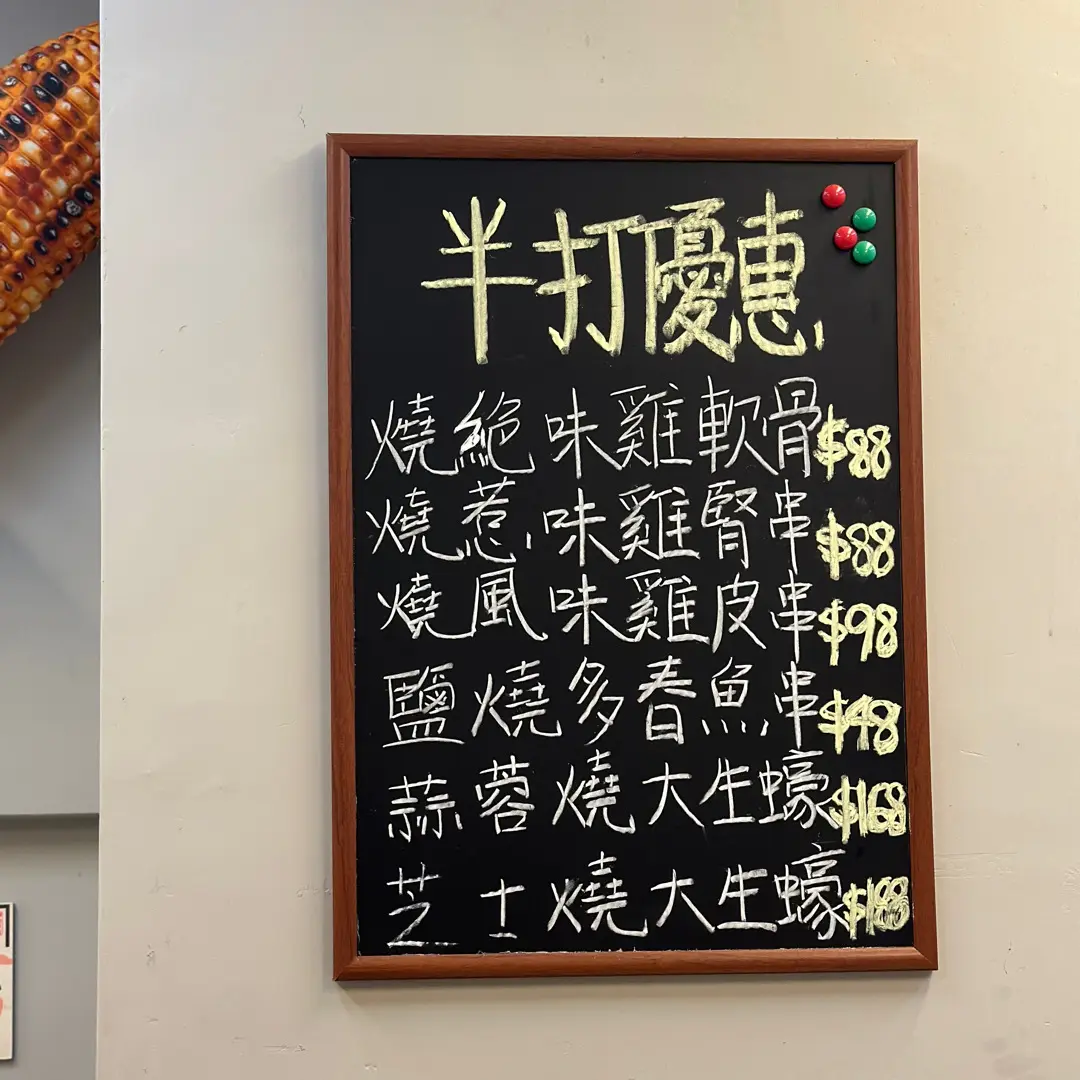 半打優惠
燒絕味雞軟骨$88
燒惹味雞腎串$88
燒風味雞皮串$98
鹽燒多春魚串$48
蒜蓉燒大生蠔$168
芝士燒大生蠔$188